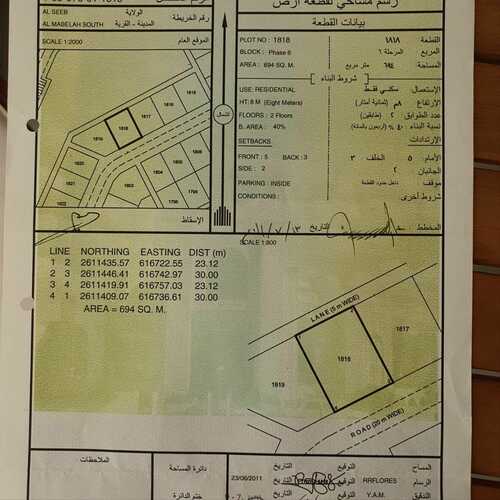 رسم مساحي لقطعة أرض
AL SEEB
الولاية
AL MABELAH SOUTH
المدينة - القرية
رقم الخريطة
بيانات القطعة
SCALE 1:2000
الموقع العام
PLOT NO : 1818
القطعة ١٨١٨
BLOCK : Phase 6
المربع المرحلة ٦
AREA : 694 SQ. M.
المساحة ٦٩٤ متر مربع
شروط البناء
USE: RESIDENTIAL
الإستعمال سكني فقط
HT: 8 M (Eight Meters)
الإرتفاع ٨م (ثمانية أمتار)
FLOORS : 2 Floors
عدد الطوابق ٢ (طابقين)
B. AREA : 40%
نسبة البناء ٤٠٪ (اربعون بالمائة)
SETBACKS
الإرتدادات
FRONT : 5 BACK : 3
الأمام ٥ الخلف ٣
SIDE : 2
الجانبان ٢
PARKING : INSIDE
موقف داخل حدود القطعة
CONDITIONS :
شروط أخرى
1818
1817
1816
1815
1819
1820
1821
1822
1803
1802
1801
1798
1796
شمال
الإسقاط
المخطط
التاريخ
SCALE 1:800
LINE NORTHING EASTING DIST (m)
1 2 2611435.57 616722.55 23.12
2 3 2611446.41 616742.97 30.00
3 4 2611419.91 616757.03 23.12
4 1 2611409.07 616736.61 30.00
AREA = 694 SQ. M.
LANE (5 m WIDE)
1817
1818
1819
ROAD (20 m WIDE)
الملاحظات
دائرة المساحة
ختم الدائرة
23/06/2011
التاريخ
التوقيع
المساح
التاريخ
التوقيع
RRFLORES
الرسام
التاريخ
التوقيع
Y.A.M.
التدقيق